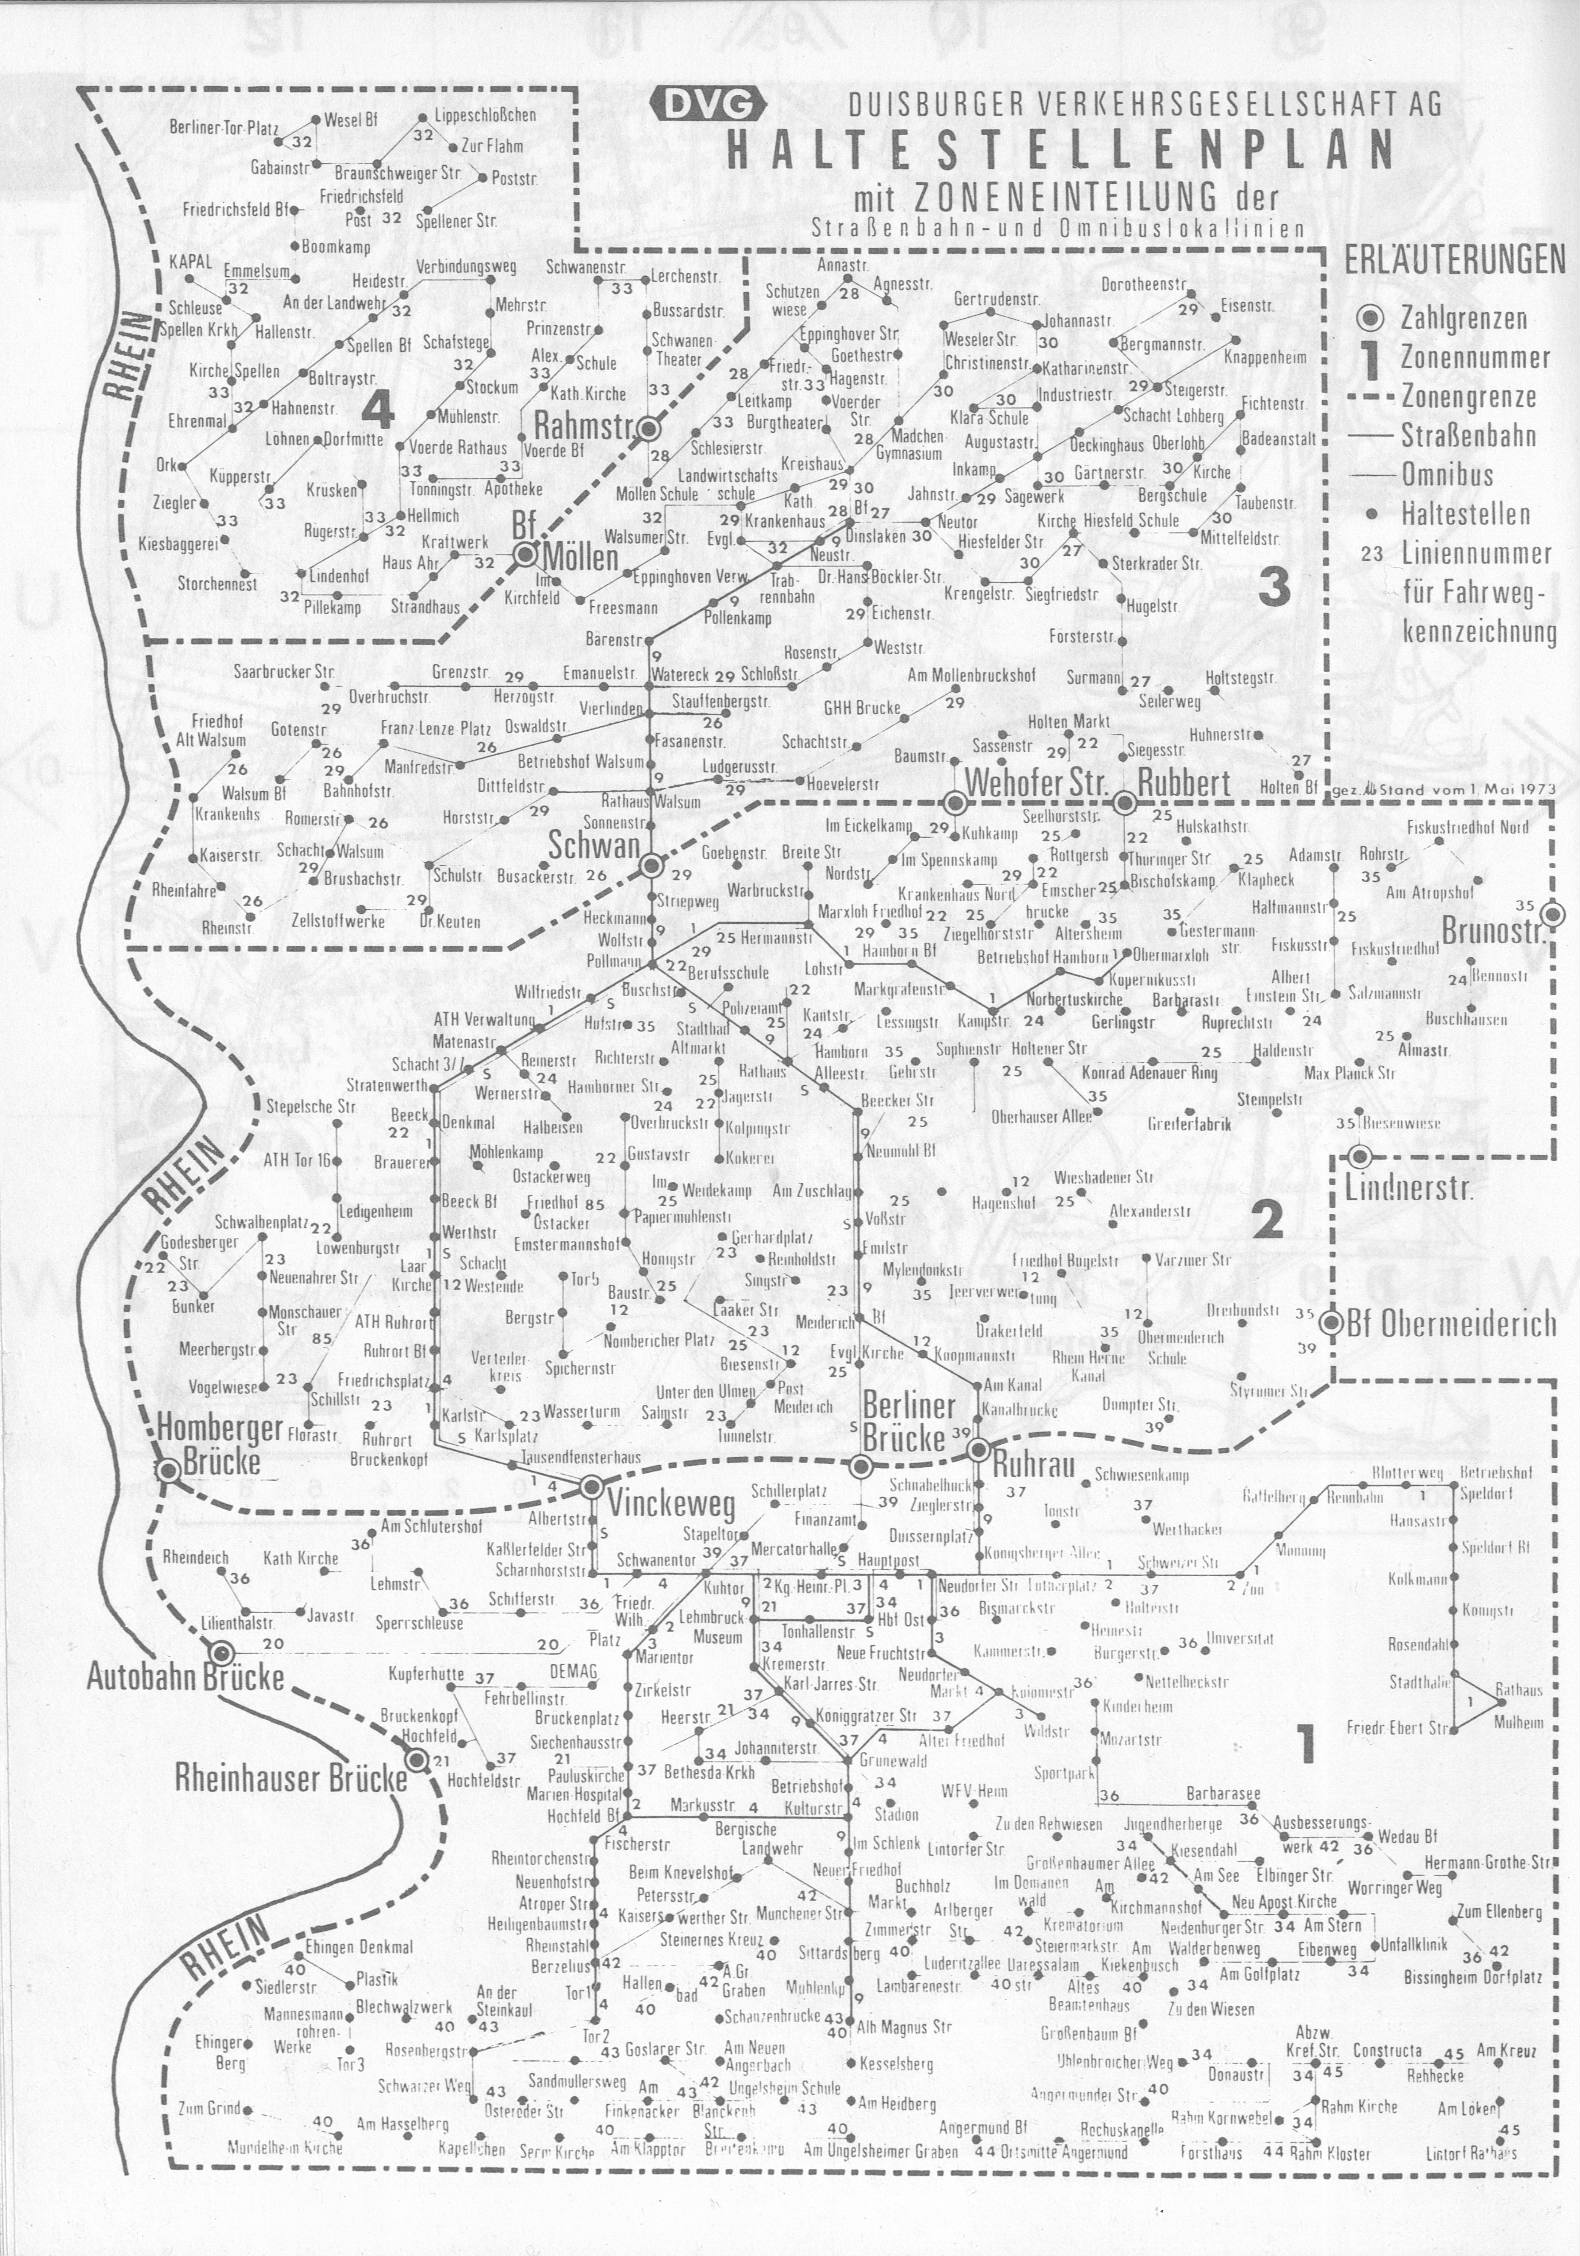 DVG
DUISBURGER VERKEHRSGESELLSCHAFT AG
HALTESTELLENPLAN
mit ZONENEINTEILUNG der
Straßenbahn- und Omnibuslokallinien
ERLÄUTERUNGEN
Zahlgrenzen
1 Zonennummer
Zonengrenze
Straßenbahn
Omnibus
Haltestellen
23 Liniennummer
für Fahrweg-
kennzeichnung
gez. Stand vom 1. Mai 1973
RHEIN
4
Berliner-Tor-Platz
32
Wesel Bf
Lippeschlößchen
32
Zur Flahm
Gabainstr.
Braunschweiger Str.
Poststr.
Friedrichsfeld Bf
Friedrichsfeld
Post 32
Spellener Str.
Boomkamp
KAPAL
Emmelsum
32
Heidestr.
Verbindungsweg
Schwanenstr.
33
Lerchenstr.
Schleuse
An der Landwehr
32
Mehrstr.
Bussardstr.
Spellen Krkh
Hallenstr.
Prinzenstr.
Schwanen-
Theater
Spellen Bf
Schafstege
32
Alex.
Schule
33
Kirche Spellen
33
Boltraystr.
Stockum
Kath. Kirche
33
32
Hahnenstr.
Mühlenstr.
Rahmstr.
Ehrenmal
Löhnen
Dorfmitte
Voerde Rathaus
Voerde Bf
28
Ork
Küpperstr.
33
Krusken
33
33
Tonningstr.
Apotheke
Möllen Schule
Ziegler
33
Rügerstr.
33
Hellmich
32
Kiesbaggerei
Kraftwerk
32
Bf
Möllen
Haus Ahr
Storchennest
Lindenhof
32
Pillekamp
Strandhaus
Im
Kirchfeld
Freesmann
Eppinghoven Verw.
Walsumer Str.
32
3
Annastr.
28
Agnesstr.
Schutzen
wiese
Eppinghover Str.
Goethestr.
Friedr.-
str. 33
Hagenstr.
28
Leitkamp
Voerder
Str.
Burgtheater
33
Schlesierstr.
28
Mädchen
Gymnasium
Landwirtschafts
schule
Kreishaus
29
30
Kath
Krankenhaus
28
Bf
27
29
Evgl.
32
9
Neustr.
Dinslaken
30
Neutor
Gertrudenstr.
Weseler Str.
Johannastr.
30
Christinenstr.
30
Katharinenstr.
30
Klara-Schule
Industriestr.
Augustastr.
Dorotheenstr.
29
Eisenstr.
Bergmannstr.
Knappenheim
29
Steigerstr.
Schacht Lohberg
Fichtenstr.
Deckinghaus
Oberlohb
Badeanstalt
Inkamp
30
Gärtnerstr.
30
Kirche
Jahnstr.
29
Sägewerk
Bergschule
Taubenstr.
Kirche
Hiesfeld Schule
30
Mittelfeldstr.
Hiesfelder Str.
27
30
Sterkrader Str.
Krengelstr.
Siegfriedstr.
Hugelstr.
Forsterstr.
Trab-
rennbahn
Dr.-Hans-Böckler-Str.
29
Eichenstr.
9
Pollenkamp
Weststr.
Bärenstr.
9
Rosenstr.
Saarbrucker Str.
Grenzstr.
29
Emanuelstr.
Watereck
29
Schloßstr.
Am Mollenbruckshof
29
Surmann
27
Seilerweg
Holtstegstr.
29
Overbruchstr.
Herzogstr.
Vierlinden
Stauffenbergstr.
26
GHH Brucke
Friedhof
Alt Walsum
26
Gotenstr.
26
Franz-Lenze-Platz
26
Oswaldstr.
Fasanenstr.
Schachtstr.
Holten Markt
Sassenstr.
29
22
Siegesstr.
Huhnerstr.
27
Holten Bf
Manfredstr.
Betriebshof Walsum
Baumstr.
Walsum Bf
29
Bahnhofstr.
Dittfeldstr.
9
Ludgerusstr.
29
Hoevelerstr.
Wehofer Str.
Rubbert
Krankenhs
Romerstr.
26
Horststr.
29
Rathaus Walsum
Sonnenstr.
Kaiserstr.
Schacht Walsum
29
Brusbachstr.
Schulstr.
Busackerstr.
26
Schwan
29
Rheinfahre
26
Rheinstr.
Zellstoffwerke
29
Dr. Keuten
2
Goebenstr.
Breite Str.
Im Eickelkamp
29
Kuhkamp
Seelhorststr.
25
25
Hulskathstr.
Fiskusfriedhof Nord
Im Spennskamp
Rottgersb
22
Thuringer Str.
25
Klapheck
Adamstr.
Rohrstr.
35
Warbruckstr.
Nordstr.
29
22
Am Atropshof
Striepweg
Krankenhaus Nord
Emscher
brucke
25
Bischofskamp
35
Heckmann
9
Wolfstr.
1
25
Hermannstr.
29
Marxloh Friedhof
22
29
35
25
Ziegelhorststr
35
Altersheim
35
Gestermann-
str.
Halfmannstr.
25
Brunostr.
Pollmann
22
Berufsschule
Lohstr
1
Hamborn Bf
Betriebshof Hamborn
1
Obermarxloh
Fiskusstr.
Fiskusfriedhof
24
Rennostr
Wilfriedstr
Buschstr.
Polizeiamt
22
Markgrafenstr.
Kupernikusstr
Albert
Einstein Str.
Salzmannstr
ATH Verwaltung
1
S
Hufstr
35
Stadtbad
25
9
Kantstr.
24
Lessingstr.
1
Kampstr.
24
Norbertuskirche
Gerlingstr.
Barbarastr.
Ruprechtstr
24
Buschhausen
Matenastr.
Reinerstr
Richterstr
Altmarkt
Rathaus
Hamborn
35
Gehrstr
Sophienstr
25
Holtener Str
25
Haldenstr
25
Almastr.
Schacht 3/7
S
24
Hamborner Str.
24
25
22
Jagerstr
S
Alleestr.
Konrad Adenauer Ring
Max Planck Str
Stratenwerth
Wernerstr
Beecker Str
25
Oberhauser Allee
35
Greiferfabrik
Stempelstr
35
Biesenwiese
Stepelsche Str
Beeck
22
Denkmal
Halbeisen
Overbruckstr
Kolpingstr
9
Neumuhl Bf
Lindnerstr.
RHEIN
ATH Tor 16
Brauerer
Möhlenkamp
Ostackerweg
22
Gustavstr
Kokerei
Am Zuschlag
25
12
Hagenshof
Wiesbadener Str
25
Alexanderstr
Beeck Bf
Friedhof
Ostacker
85
Im
25
Weidekamp
Papiermuhlenstr
S
Voßstr
Ledigenheim
Werthstr
Schwalbenplatz
22
Lowenburgstr
Emstermannshof
Gerhardplatz
23
Emilstr
Godesberger
Str.
22
23
Bunker
23
Neuenahrer Str.
Laar
Kirche
12
Schacht
Westende
Honigstr
25
Reinholdstr
Singstr
Mylendonkstr
35
Friedhof Bugelstr
12
Varziner Str
Monschauer
Str
85
ATH Ruhrort
Tor 5
Bergstr
Baustr.
12
Laaker Str
23
23
9
12
Obermeiderich
Schule
Dreibundstr
35
39
Bf Obermeiderich
Meerbergstr.
Ruhrort Bf
Nombericher Platz
25
Meiderich
Bf
12
Drakerfeld
35
Rhein Herne
Kanal
Vogelwiese
23
Schillstr
Friedrichsplatz
4
Verteiler-
kreis
Spichernstr
Biesenstr
12
Evgl. Kirche
25
Koopmannstr
Styrumer Str
23
Karlstr.
23
Wasserturm
Unter den Ulmen
Post
Meiderich
Am Kanal
Homberger
Brücke
Florastr.
Ruhrort
Bruckenkopf
S
Karlsplatz
Salmstr
23
Tunnelstr.
Berliner
Brücke
Kanalbrucke
39
Dumpter Str.
39
Tausendfensterhaus
1
4
Vinckeweg
Ruhrau
1
Schillerplatz
39
Finanzamt
Schnabelhuck
37
Schwiesenkamp
Blotterweg
Betriebshof
Speldorf
Albertstr
S
Zieglerstr
9
37
Werthacker
Raffelberg
Rennbahn
1
Hansastr
Am Schlutershof
36
Stapeltor
39
Mercatorhalle
Duissernplatz
Rheindeich
36
Kath Kirche
Kaßlerfelder Str
Schwanentor
37
S
Hauptpost
Königsberger Allee
1
Schweizer Str
Monning
Speldorf Bf
Lehmstr.
Scharnhorststr
1
4
Kuhtor
2
Kg.-Heinr.-Pl.
3
4
1
Neudorfer Str
Lutherplatz
2
37
2
1
Zoo
Kolkmann
Lilienthalstr.
Javastr.
36
Sperrschleuse
Schifferstr.
36
Friedr.
Wilh.
Platz
2
3
9
21
Lehmbruck
Museum
37
34
Tonhallenstr.
S
Hbf Ost
36
Bismarckstr
Holteistr
Königstr
Autobahn Brücke
20
20
Marientor
34
Neue Fruchtstr
3
Kammerstr.
Heinestr
Burgerstr.
36
Universitat
Rosendahl
Kupferhutte
37
DEMAG
Kremerstr.
Neudorfer
Markt
4
Nettelbeckstr
Stadthalle
1
Rathaus
Mulheim
Fehrbellinstr.
Zirkelstr
37
Karl-Jarres-Str.
36
Kinderheim
Friedr. Ebert Str
Bruckenkopf
Hochfeld
Bruckenplatz
Heerstr.
21
34
9
Königgrätzer Str
37
3
Wildstr
Mozartstr
Siechenhausstr
4
Alter Friedhof
Rheinhauser Brücke
21
37
Hochfeldstr.
21
Pauluskirche
37
34
Johanniterstr.
37
Grunewald
Sportpark
Bethesda-Krkh
Marien-Hospital
Betriebshof
34
WFV-Heim
36
Barbarasee
Hochfeld Bf
2
Markusstr.
4
Kulturstr.
4
Stadion
4
Fischerstr.
Bergische
Landwehr
9
Im Schlenk
Lintorfer Str.
Zu den Rehwiesen
Jugendherberge
36
Ausbesserungs-
werk
42
36
Wedau Bf
Rheintorchenstr
34
Kiesendahl
Neuenhofstr
Beim Knevelshof
Neuer Friedhof
Großenbaumer Allee
42
Am See
Elbinger Str.
Hermann-Grothe-Str.
Atroper Str
4
Petersstr
42
Buchholz
Markt
Im Domanen
wald
Am
Kirchmannshof
Worringer Weg
Heiligenbaumstr
Kaisers werther Str.
Munchener Str
Arlberger
Str.
Krematorium
Neu Apost. Kirche
Zum Ellenberg
Rheinstahl
Steinernes Kreuz
40
Zimmerstr
42
Steiermarkstr.
Neidenburger Str.
34
Am Stern
RHEIN
Ehingen Denkmal
40
Berzelius
42
Sittardsberg
40
Walderbenweg
Eibenweg
Unfallklinik
36
42
Bissingheim Dorfplatz
Siedlerstr.
Plastik
Hallen
bad
42
A. Gr.
Graben
Luderitzallee
Daressalam
str
Am
Kiekenbusch
Am Golfplatz
34
Mannesmann
rohren-
Werke
Blechwalzwerk
40
An der
Steinkaul
43
Tor 1
4
40
Muhlenkp
9
Lambarenestr.
40
Altes
Beamtenhaus
40
34
Zu den Wiesen
Ehinger
Berg
Tor 3
Tor 2
Schanzenbrucke
43
40
Alb Magnus Str
Großenbaum Bf
Abzw.
Kref. Str.
Rosenbergstr
43
Goslarer Str.
Am Neuen
Angerbach
Kesselsberg
Uhlenbroicher Weg
34
Donaustr
34
45
Constructa
45
Rehhecke
Am Kreuz
Schwarzer Weg
Sandmullersweg
42
Angermunder Str.
40
Zum Grind
43
Osteroder Str
Am
Finkenacker
43
Blanckenb
Str.
Ungelsheim Schule
43
Am Heidberg
Rahm Kornwebel
34
Rahm Kirche
Am Löken
40
Am Hasselberg
40
40
Angermund Bf
Rochuskapelle
45
Mundelheim Kirche
Kapellchen
Serm Kirche
Am Klapptor
Breitenkamp
Am Ungelsheimer Graben
44
Ortsmitte Angermund
Forsthaus
44
Rahm Kloster
Lintorf Rathaus